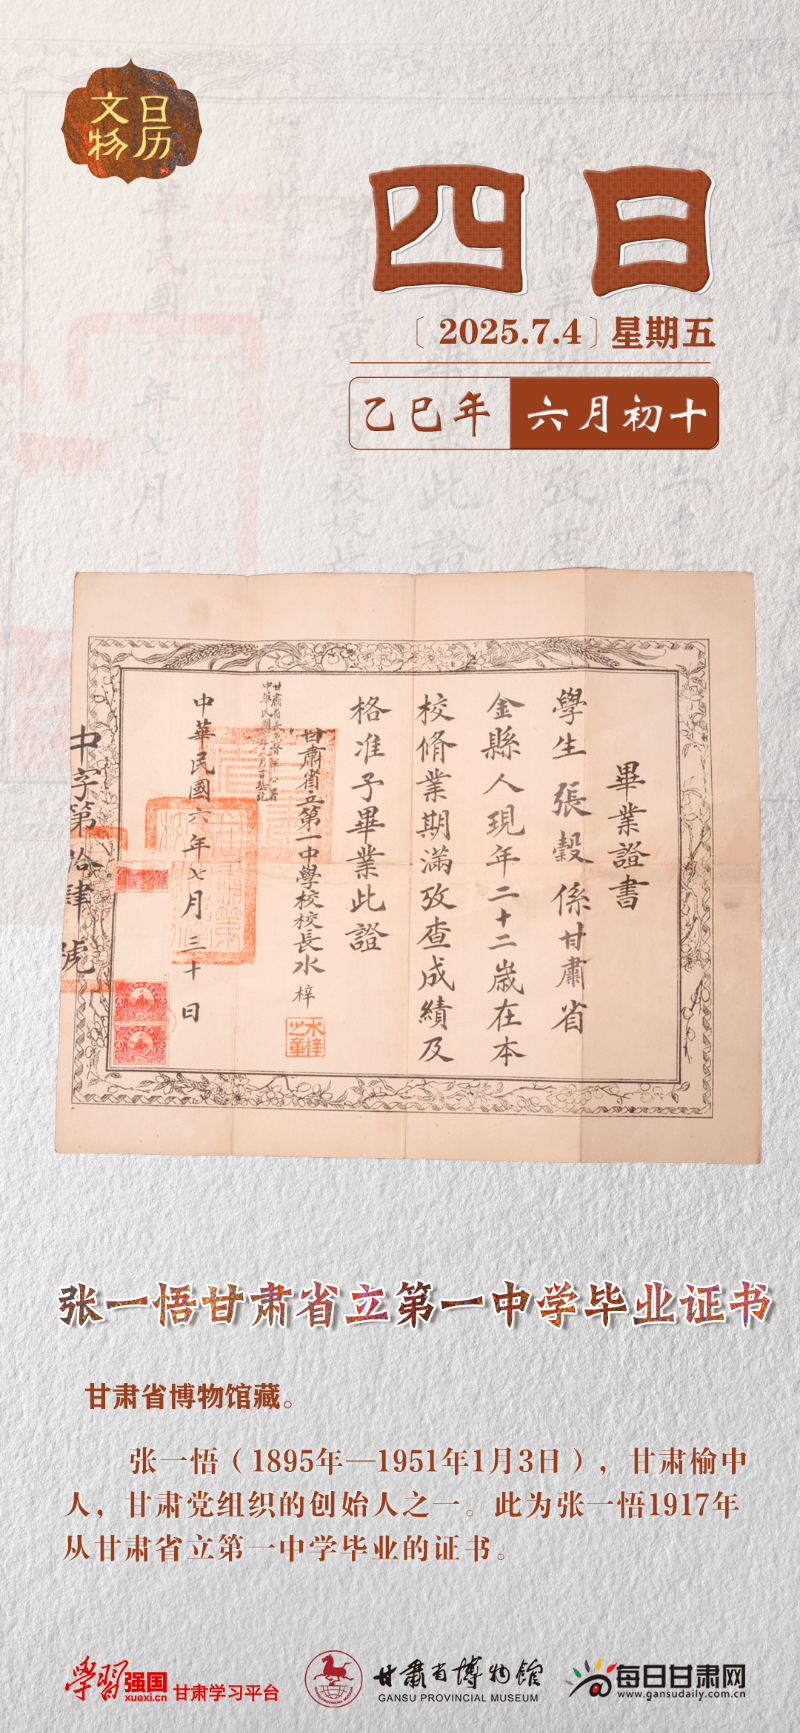 文物
日历
四日
〔2025.7.4〕星期五
乙巳年 六月初十
畢業證書
學生張毅係甘肅省
金縣人現年二十二歲在本
校脩業期滿攷查成績及
格准予畢業此證
甘肅省立第一中學校校長水梓
水梓之章
中華民國六年七月三十日
中字第拾肆號
张一悟甘肃省立第一中学毕业证书
甘肃省博物馆藏。
张一悟（1895年—1951年1月3日），甘肃榆中
人，甘肃党组织的创始人之一。此为张一悟1917年
从甘肃省立第一中学毕业的证书。
学习强国
xuexi.cn
甘肃学习平台
甘肃省博物馆
GANSU PROVINCIAL MUSEUM
每日甘肃网
www.gansudaily.com.cn